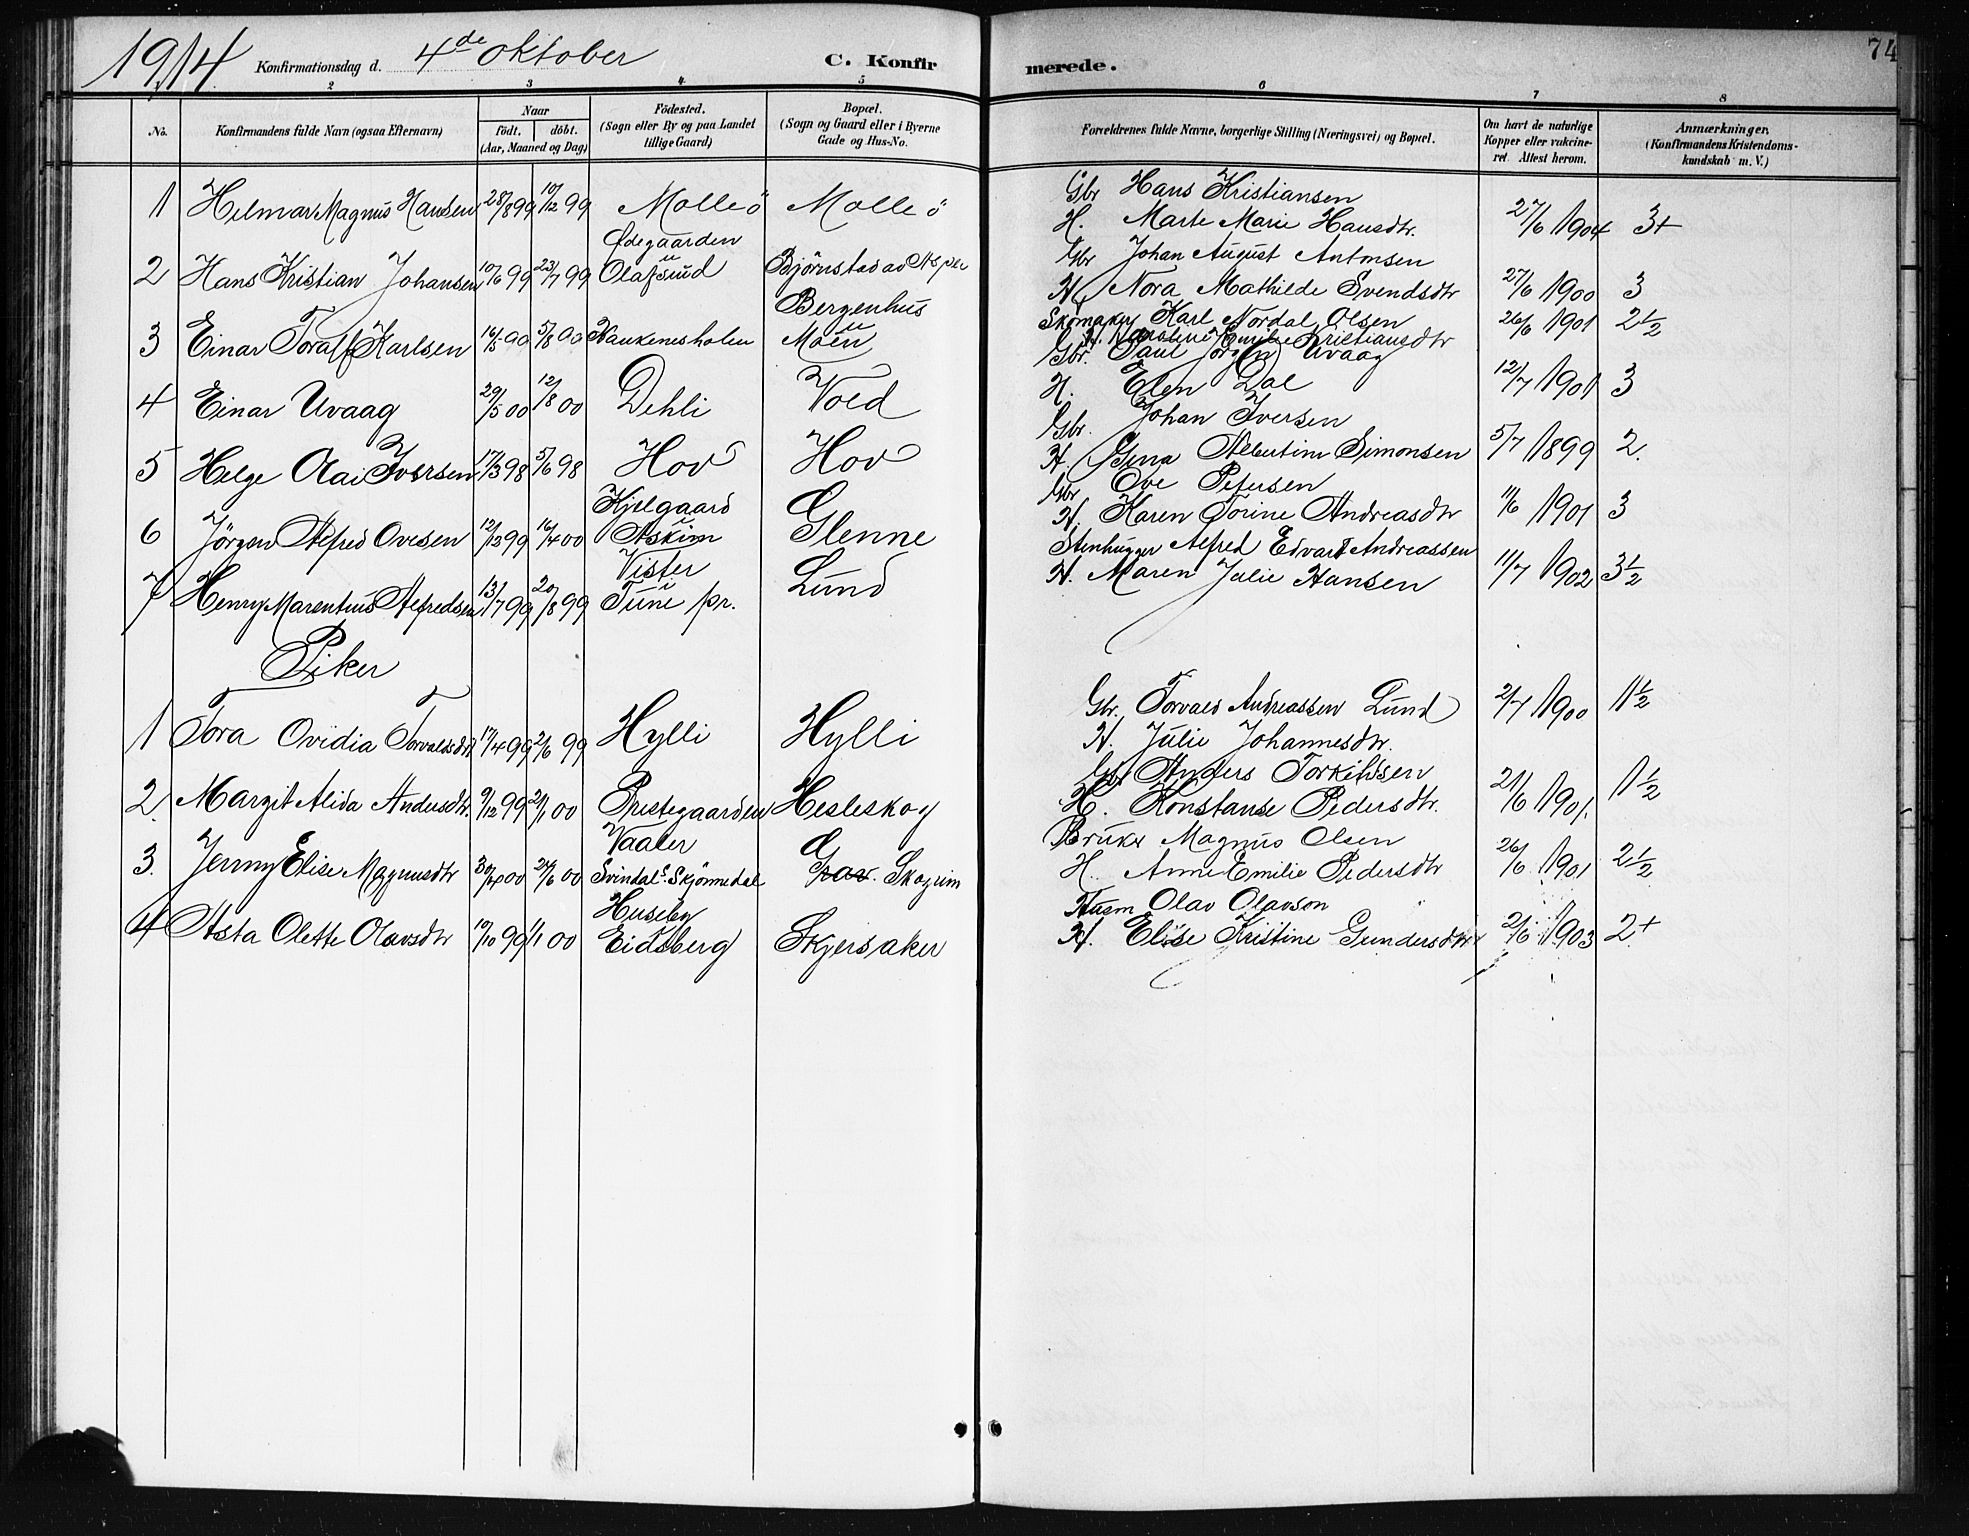 74
1914 Konfirmationsdag d. 4de Oktober C. Konfirmerede.
1 2 3 4 5 6 7 8
No. Konfirmandens fulde Navn (ogsaa Efternavn) Naar födt. döbt. (Aar, Maaned og Dag) Födested. (Sogn eller By og paa Landet tillige Gaard) Bopæl. (Sogn og Gaard eller i Byerne Gade og Hus-No. Forældrenes fulde Navne, borgerlige Stilling (Næringsvei) og Bopæl. Om havt de naturlige Kopper eller vakcineret. Attest herom. Anmærkninger. (Konfirmandens Kristendomskundskab m. V.)
1 Helmar Magnus Hansen 28/8 99 10/12 99 Molleö Molleö Gbr Hans Kristiansen
H. Marte Marie Hansdtr. 27/6 1904 3+
2 Hans Kristian Johansen 10/6 99 23/7 99 Ødegaarden Olafsund Björnstad av Gbr Johan August Antonsen
H. Nora Mathilde Svendsdtr 27/6 1900 3
3 Einar Toralf Karlsen 16/5 90 5/8 90 Haukenesholen Bergenhus Moen Skomaker Karl Nordal Olsen 26/6 1901 2½
H. Karoline Emilie Kristiansdtr
4 Einar Uvaag 29/5 00 12/8 00 Dehli Vold Gbr. Paul Jörgen Uvaag
H. Elen Dal 12/7 1901 3
5 Helge Olai Iversen 17/3 98 5/6 98 Hov Hov Gbr. Johan Iversen
H. Gina Albertine Simonsen 5/7 1899 2.
6 Jörgen Alfred Ovesen 12/12 99 16/4 00 Kjelgaard Askim Glenne Gbr Ove Petersen
H. Karen Torine Andreasdtr 11/6 1901 3
7 Henry Marentius Alfredsen 13/7 99 20/8 99 Vister Tune pr. Lund Stenhugger Alfred Edvart Andreassen
H. Maren Julie Hansen 11/7 1902 3½
Piker
1 Tora Ovidia Torvaldsdtr 17/4 99 2/6 99 Hylli Hylli Gbr. Torvald Andreassen Lund 2/7 1900 1½
H. Julie Johannesdtr.
2. Margit Alida Andersdtr. 9/12 99 21/1 00 Prestegaarden Hesleskog Gbr Anders Torkildsen
H. Konstanse Pedersdtr. 21/6 1901. 1½
3. Jenny Elise Magnusdtr 30/4 00 24/6 00 Vaaler Svindal s. Skjönnedal Skogrim Bruker Magnus Olsen
H. Anne Emilie Pedersdtr 26/6 1901 2½
4 Asta Olette Olavsdtr 19/10 99 1/1 00 Huseby Eidsberg Skjersaker Husm Olav Olavson
H. Elise Kristine Gundersdtr 2/6 1903 2+